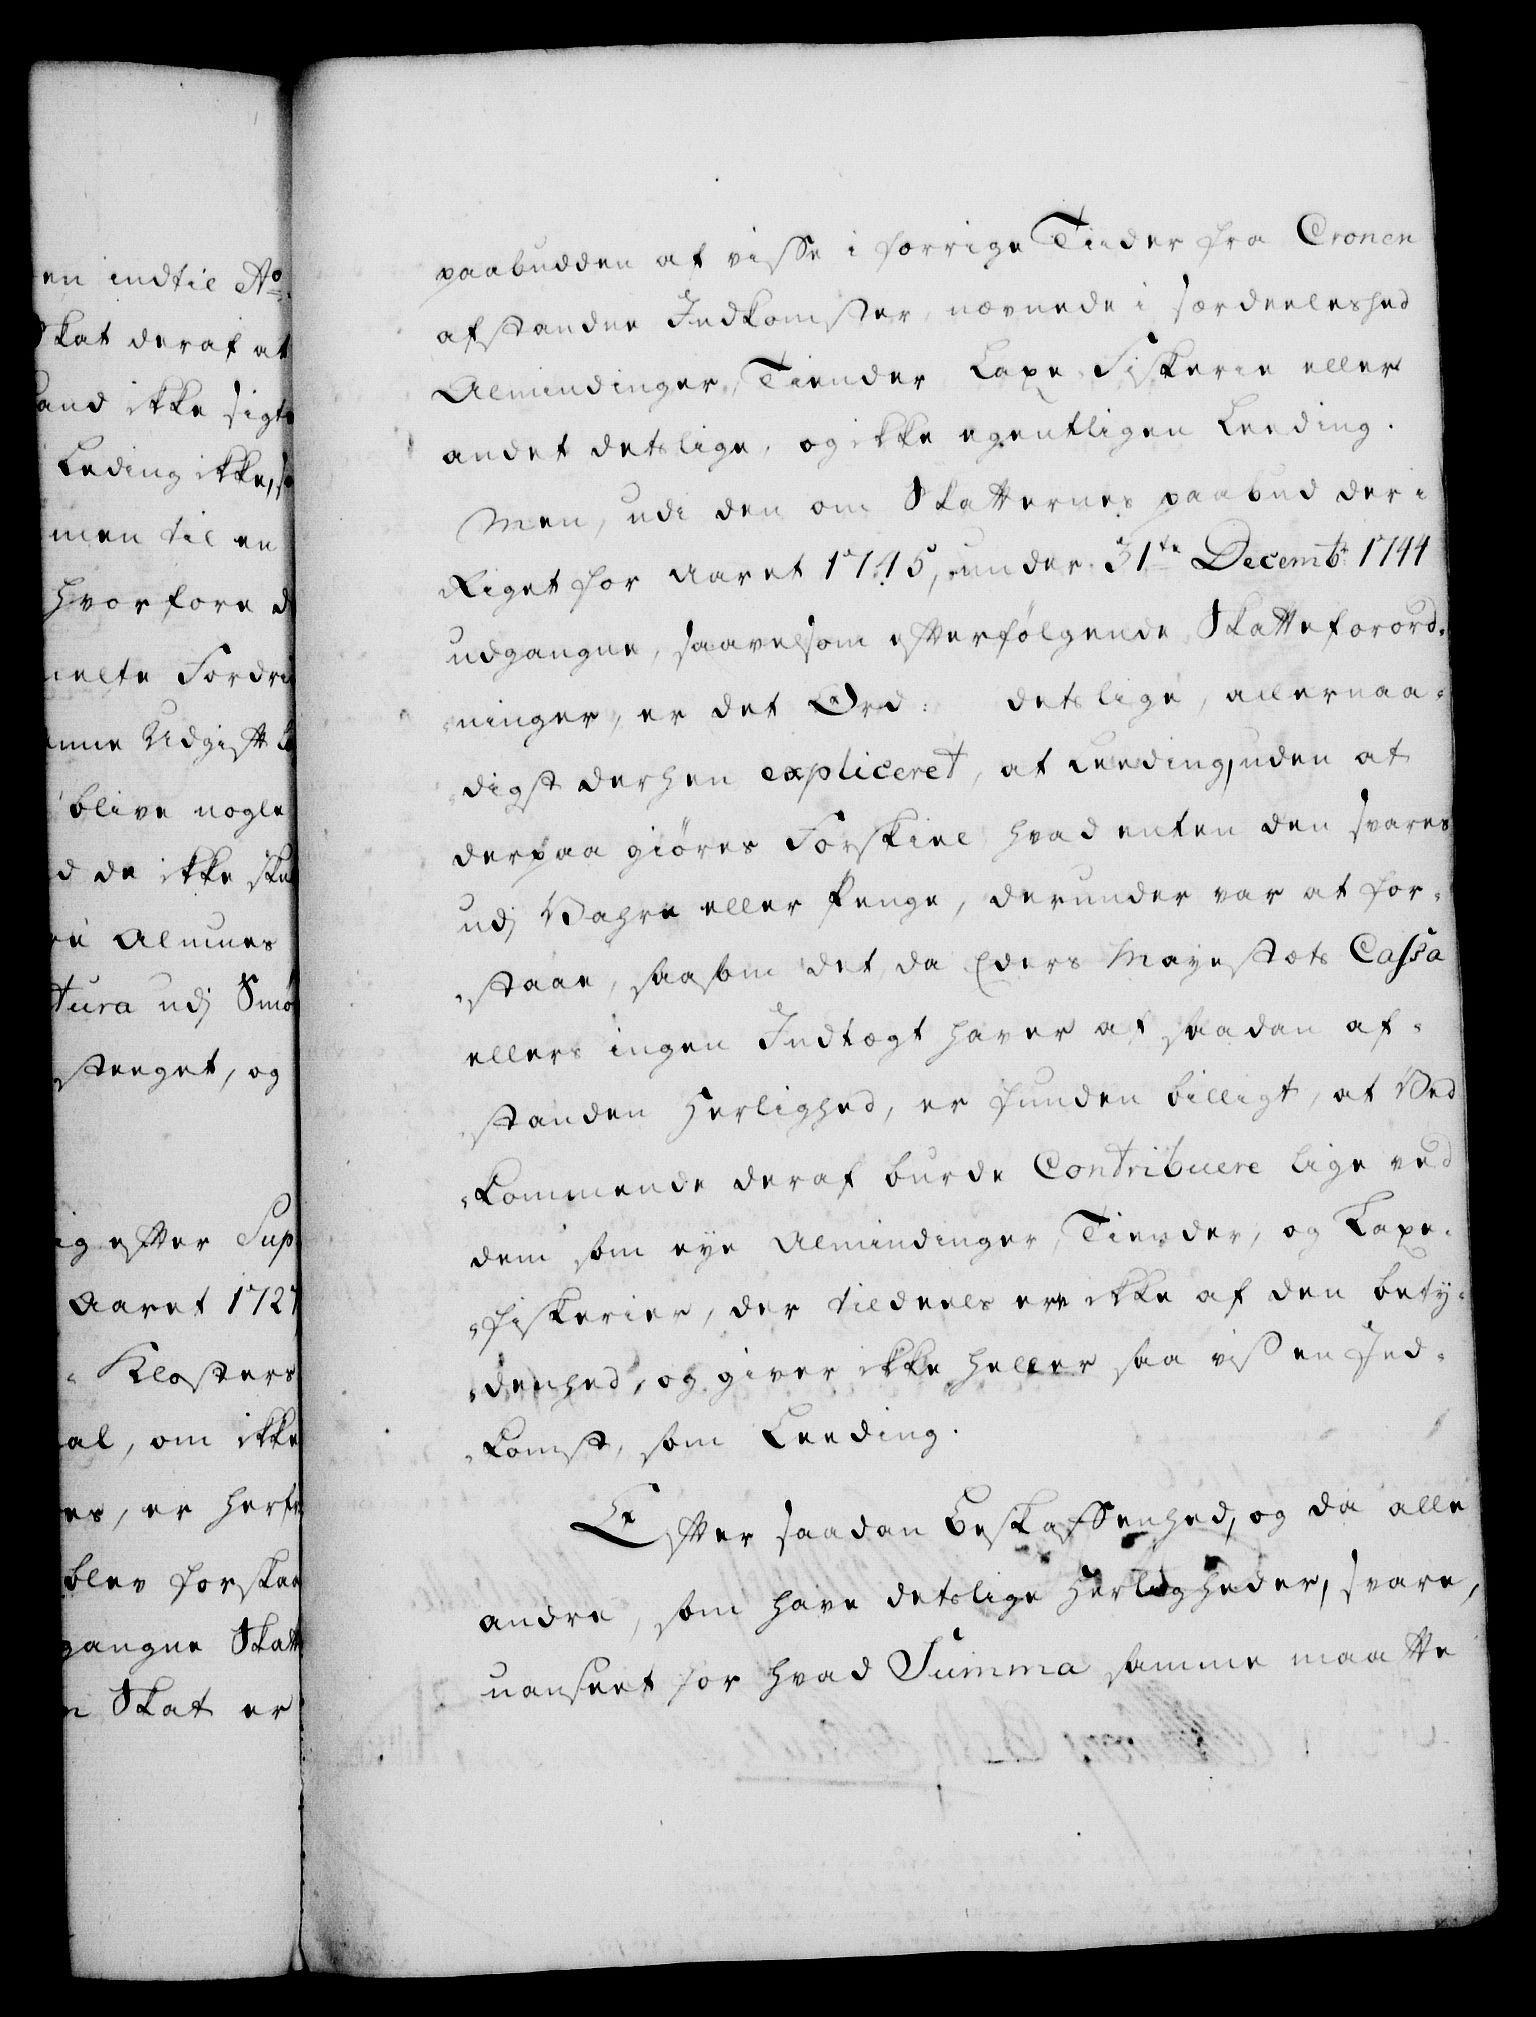 en indtil Ao
Skat deraf at
Land ikke sigte
Leding ikke, 
men til en
hvorfore d
melte Fordri
mme Udgift
blive nogle
d de ikke skul
Almues
tura udj Smø
stæeget, og
ig efter Sup
Aaret 1727
Klosters
al, om ikke
es, er herfr
blev forskaa
gangne Skatt
n Skat er
paabudden af visse i forrige Tiider fra Cronen
afstandne Indkomster, nævnede i særdeeleshed
Almindinger, Tiender Laxe-Fiskerie eller
andet detslige, og ikke egentligen Leeding.
Men, udi den om Skatternes paabud der i
Riget for Aaret 1745, under 31te Decembr 1744
udgangne, saavelsom efterfølgende Skatteforord-
ninger, er det Ord: detslige, allernaa-
digst derhen expliceret, at Leeding, uden at
derpaa giøres Forskiel hvad enten den svares
udj Vahre eller Penge, derunder var at for-
staae, saasom det, da Eders Mayestæts Cassa
ellers ingen Indtægt haver af saadan af-
standen Herlighed, er funden billigt, at Ved-
kommende deraf burde Contribuere lige ved
dem som eye Almindinger, Tiender, og Laxe-
fiskerier, der tildeels ere ikke af den bety-
denhed, og giver ikke heller saa viss en Ind-
komst, som Leeding.
Efter saadan Beskaffenhed, og da alle
andre, som have detslige Herligheder, svare,
uanseet for hvad Summa samme maatte